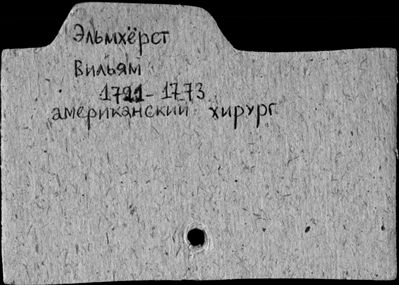 Эльмхёрст
Вильям
1721-1773
американский хирург